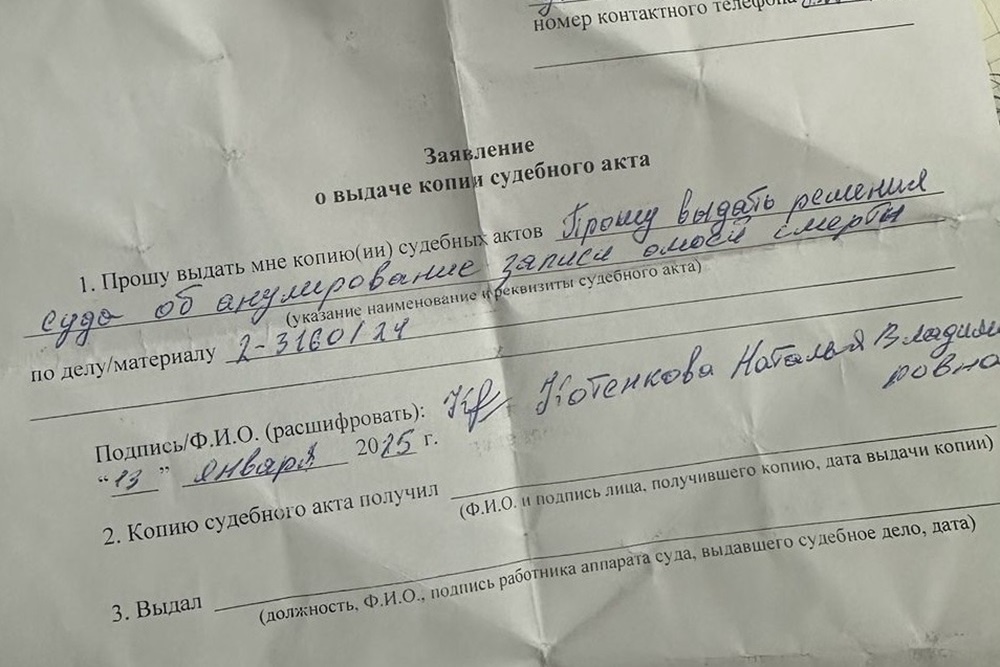 номер контактного телефона
Заявление
о выдаче копии судебного акта
1. Прошу выдать мне копию(ии) судебных актов Прошу выдать решения
суда об анулирование записи омоей смерты
(указание наименование и реквизиты судебного акта)
по делу/материалу 2-3160/24
Подпись/Ф.И.О. (расшифровать): Котенкова Наталья Владими
ровна
“13” января 2025 г.
2. Копию судебного акта получил
(Ф.И.О. и подпись лица, получившего копию, дата выдачи копии)
3. Выдал
(должность, Ф.И.О., подпись работника аппарата суда, выдавшего судебное дело, дата)